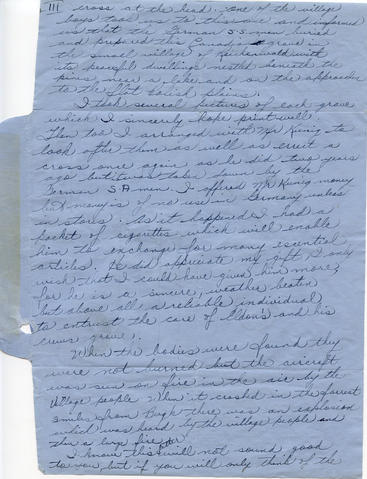 III cross at the head. One of the village
boys took us to this one and informed
us that the German S.S. men buried
and prepared this Canadian grave in
the small village of Kuhnwald with
its peaceful dwellings nestled beneath the
pines near a lake and on the approaches
to the flat Polish plains.
I took several pictures of each grave
which I sincerely hope print well.
Then too I arranged with Mr Kunig to
look after them as well as erect a
cross once again as he did two years
ago but it was taken down by the
German S.A. men. I offered Mr Kunig money
but money is of no use in Germany unless
in stores. As it happened I had a
packet of cigarettes which will enable
him to exchange for many esential
articles. He did appreciate my gift & I only
wish that I could have given him more,
for he is a sincere, weather beaten
but above all a reliable individual
to entrust the care of Eldon's and his
crews graves.
When the bodies were found they
were not burned but the aircraft
was seen on fire in the air by the
village people. When it crashed in the forrest
5 miles from there was an explosion
which was heard by the village people and
then a large fire after.
I know this will not sound good
to you but if you will only think of the